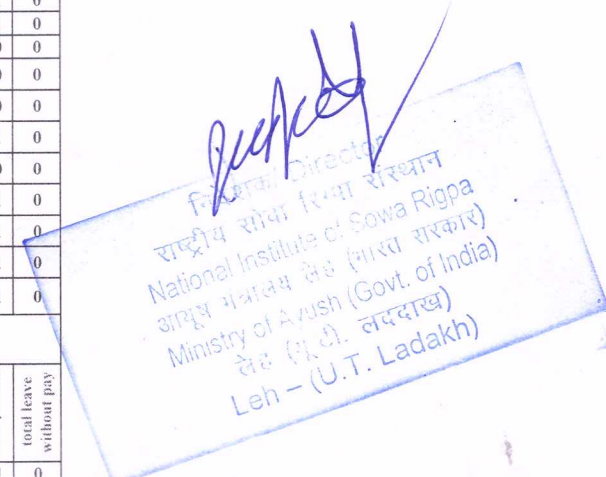 0
0
0
0
0
0
0
0
0
0
total leave
without pay
0
निदेशक/Director
राष्ट्रीय सोवा रिग्पा संस्थान
National Institute of Sowa Rigpa
आयूष मंत्रालय लेह (भारत सरकार)
Ministry of Ayush (Govt. of India)
लेह (यू.टी. लद्दाख)
Leh – (U.T. Ladakh)